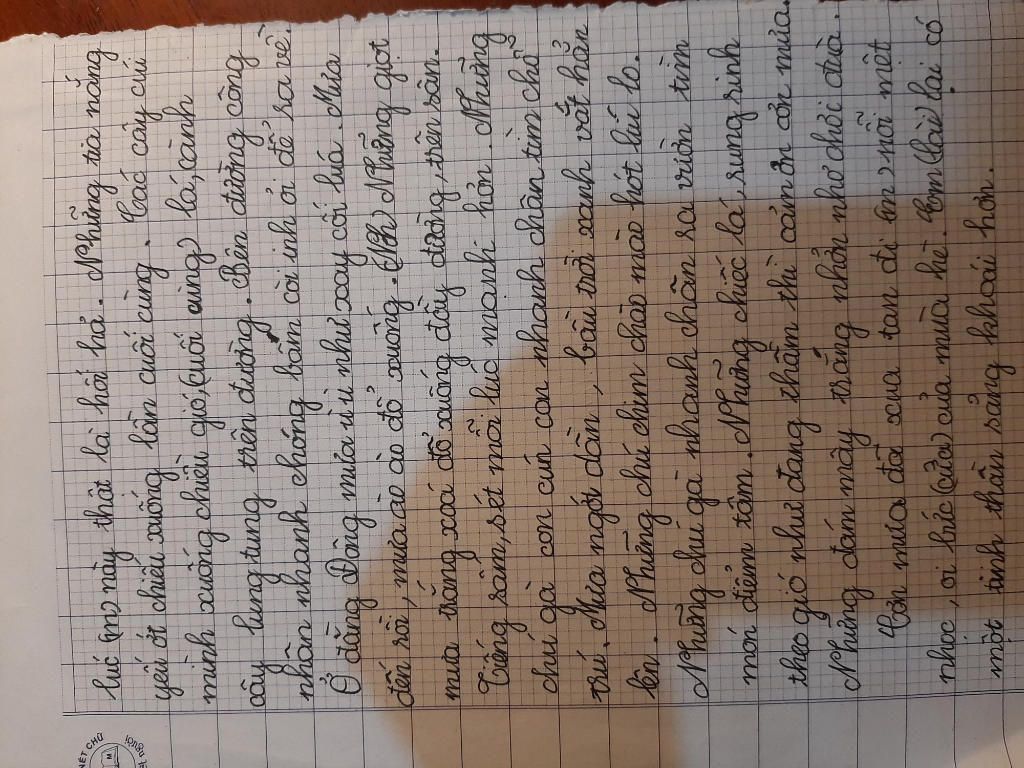 lúc (m) này thật là hối hả. Những tia nắng
yếu ớt chiếu xuống lần cuối cùng. Các cây cúi
mình xuống chiều gió, (cuối cùng) lá, cành
cây lung tung trên đường. Bên đường công
nhân nhanh chóng bấm còi inh ỏi để ra về.
Ở đằng Đông mưa ù ù như xay cối lúa. Mưa
đến rồi, mưa ào ào đổ xuống. (Nh) Những giọt
mưa trắng xoá đổ xuống đầy đường, trên sân.
Tiếng sấm, sét mỗi lúc mạnh hơn. Những
chú gà con cuả con nhanh chân tìm chỗ
trú. Mưa ngớt dần, bầu trời xanh vắt hẳn
lên. Những chú chim chào mào hót lúi lo.
Những chú gà nhanh chân ra vườn tìm
món điểm tâm. Những chiếc lá rung rinh
theo gió như đang thầm thì cảm ơn cơn mưa.
Những đám mây trắng nhởn nhơ chơi đùa.
Cơn mưa đã xua tan đi (m) nỗi mệt
nhọc, oi bức (của) của mùa hè. Em (lài) lại có
một tinh thần sảng khoái hơn.
NÉT CHỮ